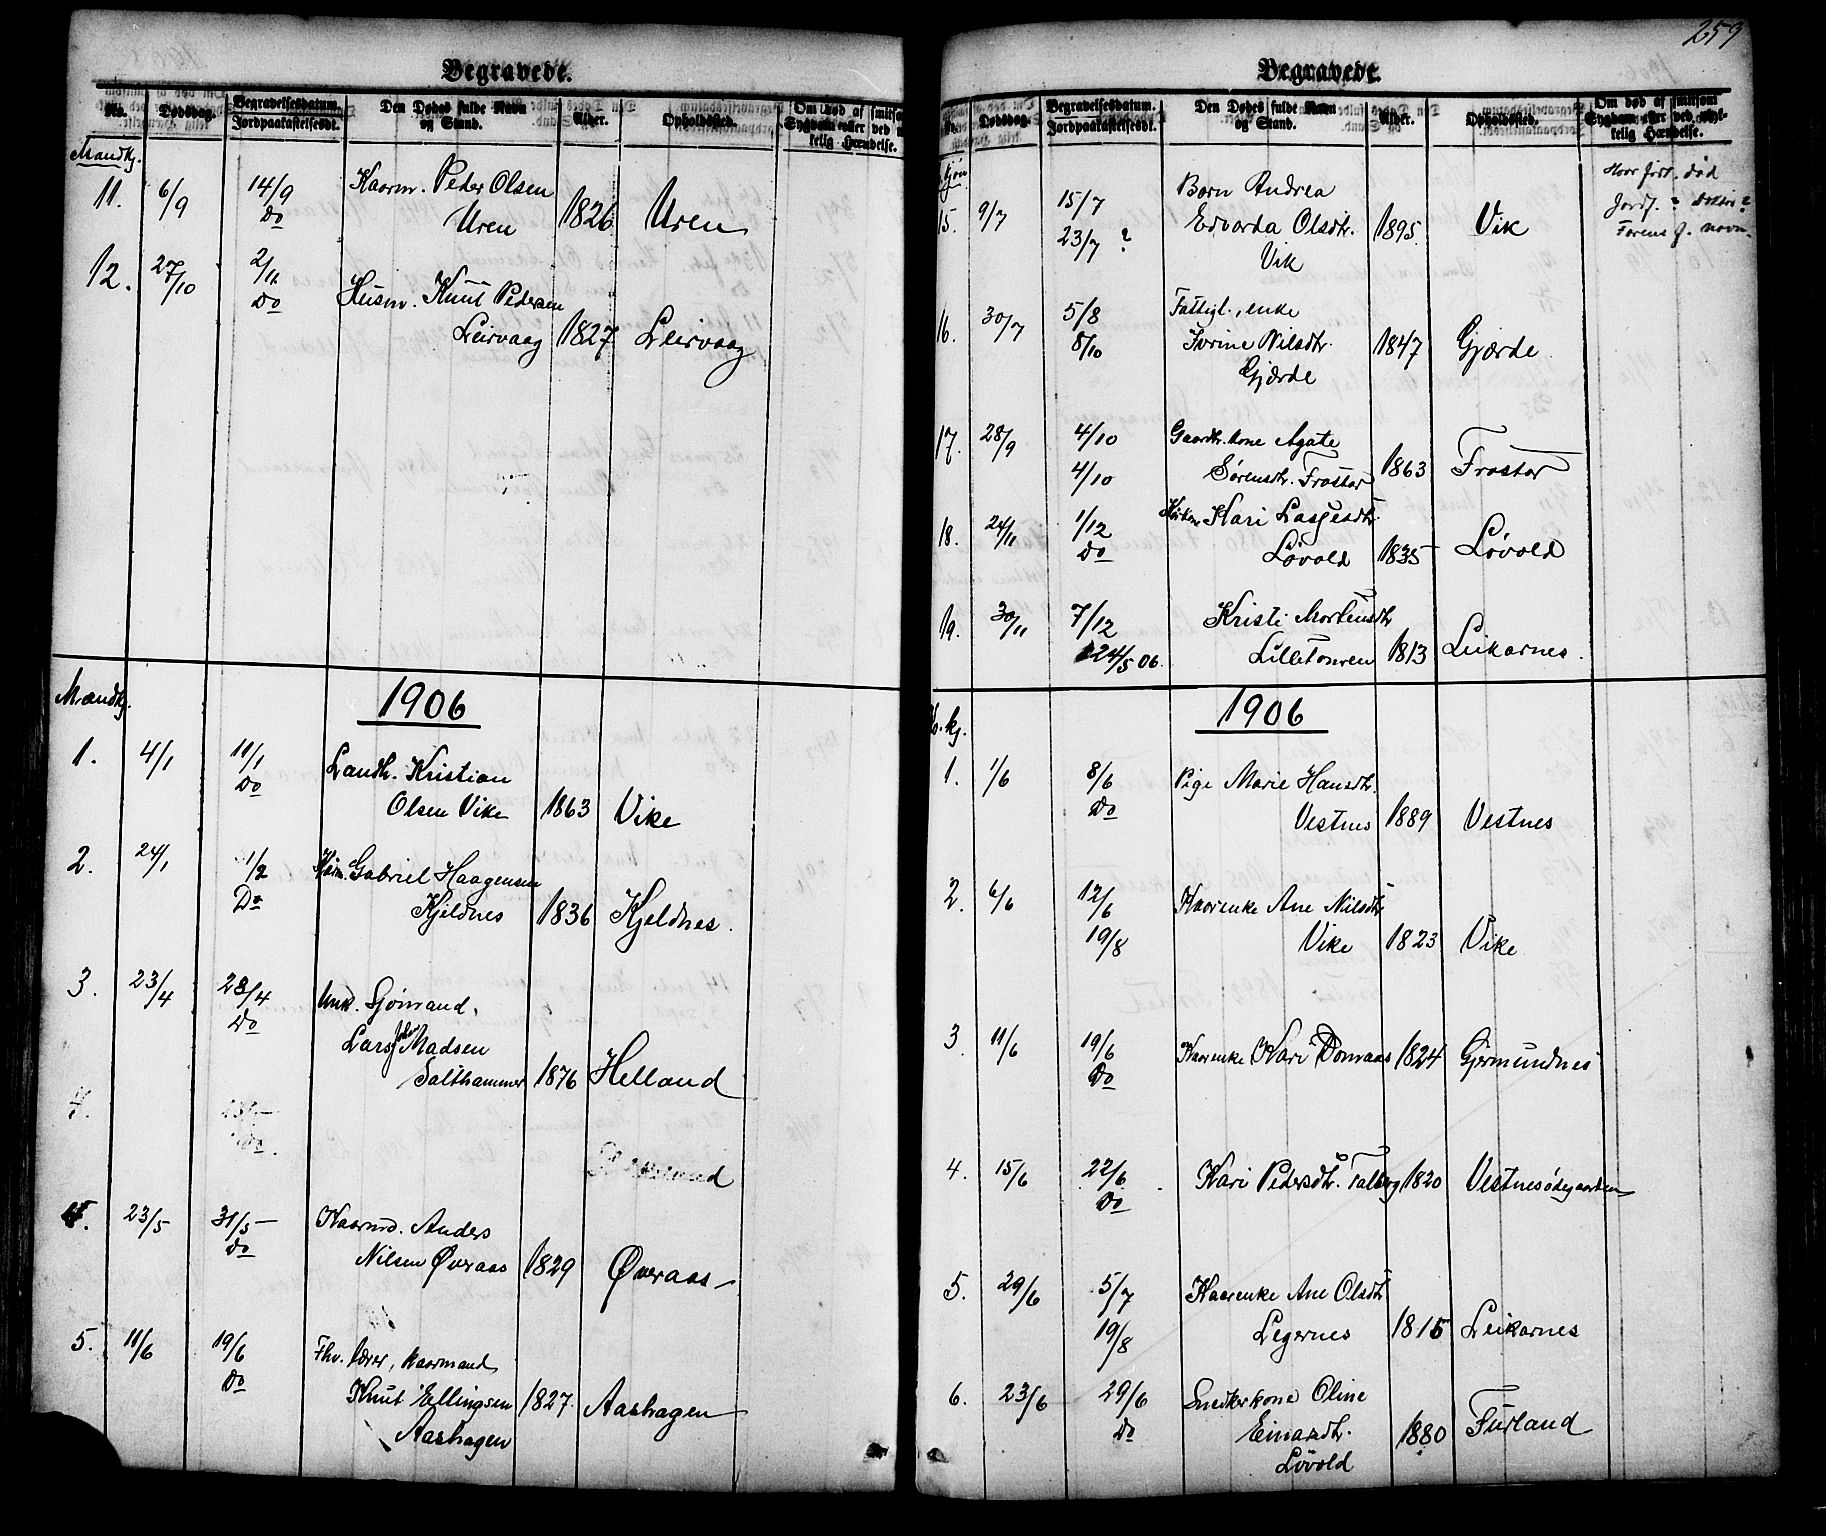 Begravede.
No. Dødsdag. Begravelsesdatum. Jordpaakastelsesdt. Den Dødes fulde Navn og Stand. Alder. Opholdssted. Om død af Sygdom eller ved kelig Hændelse.
Mandkj.
11. 6/9 14/9 Kaarm. Peder Olsen
Do Uren 1826 Uren
12. 27/10 2/11 Husm. Knut Pedersen
Do Leirvaag 1827 Leirvaag
Mandkj. 1906
1. 4/1 11/1 Landh. Kristian
Do Olsen Vike 1863 Vike
2. 24/1 1/2 Kårm. Gabriel Haagensen
Do Kjeldnes 1836 Kjeldnes.
3. 23/4 28/4 Unk. Sjømand,
Do Lars John Madsen
Salthammer 1876 Helland
4.
Do
4. 23/5 31/5 Kaarmd. Anders
Do Nilsen Øveraas 1829 Øveraas
5. 11/6 19/6 Fhv. lærer, kaarmand
Do Knut Ellingsen 1827. Aashagen
Aashagen
259
Begravede.
Dødsdag. Begravelsesdatum. Jordpaakastelsesdt. Den Dødes fulde Navn og Stand. Alder. Opholdssted. Om død af smitsom Sygdom eller ved ulykkelig Hændelse.
Kjøn
15. 9/7 15/7 Barn Andrea
23/7 ? Edvarda Olsdtr. 1895 Vik
Vik
død
Jordf. ?
navn.
16. 30/7 5/8 Fattigl., enke
8/10 Iverine Nilsdtr. 1847 Gjærde
Gjærde
17. 28/9 4/10 Gaardbr. kone Agate
4/10 Sørensdtr. Frostar 1863 Frostar
18. 24/11 1/12 Kari Lassesdtr.
Do Løvold 1835 Løvold
19. 30/11 7/12 Kristi Mortensdtr
24/5 06. Lilletonren 1813 Leikarnes.
kj. 1906
1. 1/6 8/6 Pige Marie Hansdtr.
Do Vestnes 1889 Vestnes
2. 6/6 12/6 Kaarenke Ane Nilsdtr
19/8 Vike 1823 Vike
3 11/6 19/6 Kaarenke Kari Domaas 1824 Gjermundnes
Do
4. 15/6 22/6 Kari Pedersdtr. Talberg 1820 Vestnesødegaarden
Do
5. 29/6 5/7 Kaarenke Ane Olsdtr
19/8 Legernes 1815 Leikarnes
6. 23/6 29/6 Snedkerkone Oline
Do Einarsdtr. 1880 Furland
Løvold